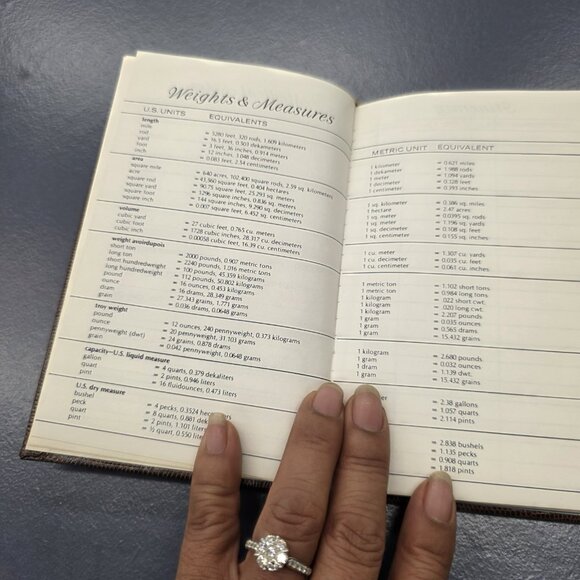 Weights & Measures
U.S. UNITS EQUIVALENTS
length
mile = 5280 feet, 320 rods, 1.609 kilometers
rod = 16.5 feet, 0.503 dekameters
yard = 3 feet, 36 inches, 0.914 meters
foot = 12 inches, 3.048 decimeters
inch = 0.083 feet, 2.54 centimeters
area
square mile = 640 acres, 102,400 square rods, 2.59 sq. kilometers
acre = 43,560 square feet, 0.404 hectares
square rod = 90.75 square feet, 25.293 sq. meters
square yard = 1296 square inches, 0.836 sq. meters
square foot = 144 square inches, 9.290 sq. decimeters
square inch = 0.007 square feet, 6.452 sq. centimeters
volume
cubic yard = 27 cubic feet, 0.765 cu. meters
cubic foot = 1728 cubic inches, 28.317 cu. decimeters
cubic inch = 0.00058 cubic feet, 16.39 cu. centimeters
weight avoirdupois
short ton = 2000 pounds, 0.907 metric tons
long ton = 2240 pounds, 1.016 metric tons
short hundredweight = 100 pounds, 45.359 kilograms
long hundredweight = 112 pounds, 50.802 kilograms
pound = 16 ounces, 0.453 kilograms
ounce = 16 drams, 28.349 grams
dram = 27.343 grains, 1.771 grams
grain = 0.036 drams, 0.0648 grams
troy weight
pound = 12 ounces, 240 pennyweight, 0.373 kilograms
ounce = 20 pennyweight, 31.103 grams
pennyweight (dwt) = 24 grains, 0.878 drams
grain = 0.042 pennyweight, 0.0648 grams
capacity—U.S. liquid measure
gallon = 4 quarts, 0.379 dekaliters
quart = 2 pints, 0.946 liters
pint = 16 fluidounces, 0.473 liters
U.S. dry measure
bushel = 4 pecks, 0.3524
peck = 8 quarts, 0.881
quart = 2 pints, 1.101 liters
pint = ½ quart, 0.550
METRIC UNIT EQUIVALENT
1 kilometer = 0.621 miles
1 dekameter = 1.988 rods
1 meter = 1.094 yards
1 decimeter = 0.328 feet
1 centimeter = 0.393 inches
1 sq. kilometer = 0.386 sq. miles
1 hectare = 2.47 acres
1 sq. meter = 0.0395 sq. rods
1 sq. meter = 1.196 sq. yards
1 sq. decimeter = 0.108 sq. feet
1 sq. centimeter = 0.155 sq. inches
1 cu. meter = 1.307 cu. yards
1 cu. decimeter = 0.035 cu. feet
1 cu. centimeter = 0.061 cu. inches
1 metric ton = 1.102 short tons
1 metric ton = 0.984 long tons
1 kilogram = .022 short cwt.
1 kilogram = .020 long cwt.
1 kilogram = 2.207 pounds
1 gram = 0.035 ounces
1 gram = 0.565 drams
1 gram = 15.432 grains
1 kilogram = 2.680 pounds
1 gram = 0.032 ounces
1 gram = 1.139 dwt.
1 gram = 15.432 grains
= 2.38 gallons
= 1.057 quarts
= 2.114 pints
= 2.838 bushels
= 1.135 pecks
= 0.908 quarts
= 1.818 pints